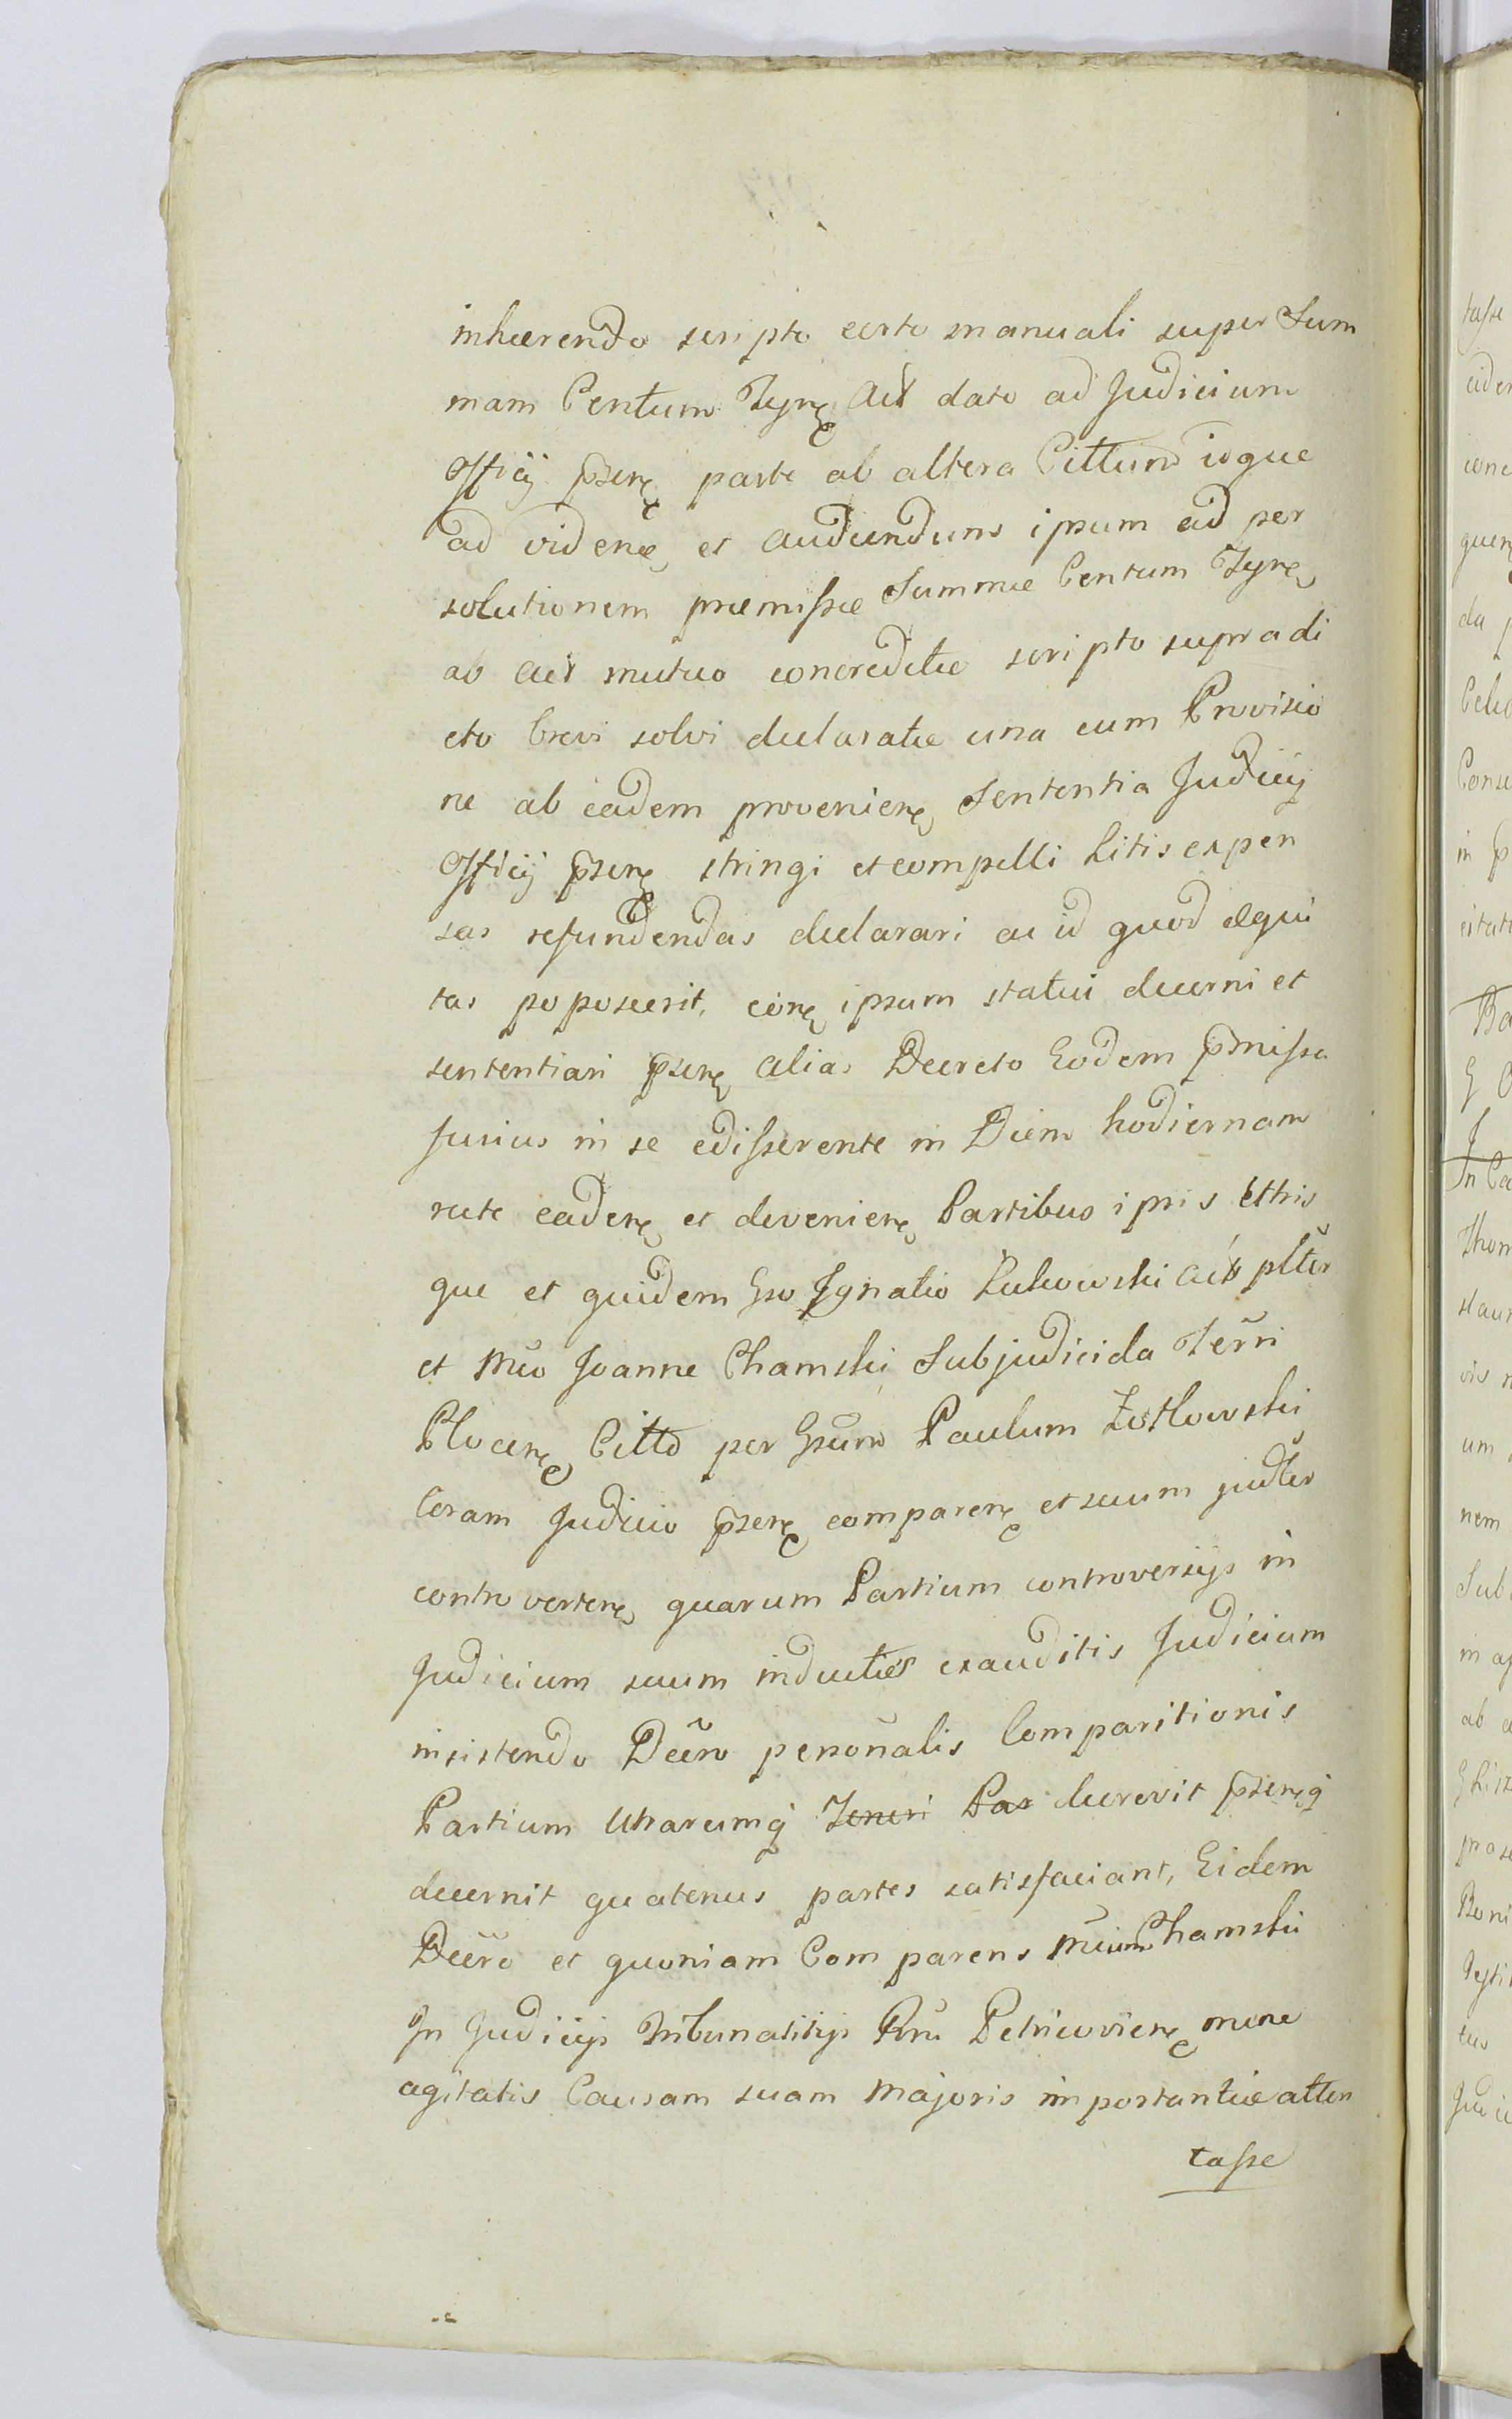 inhærendo scripto certo manuali super Sum
mam Centum Tynę Act dato ad Judicium
Officij pserę parte ab altera Cittum ioque
ad videnę et audiendum ipsum ad per
solutionem præmissæ Summæ Centum Tynę
ab Act mutuo concreditæ scripto supradi
cto brevi solvi declaratæ una cum Provisio
ne ab eadem provenienę Sententia Judicij
Officij pserę stringi et compelli Litis expen
sas refundendas declarari ac id quod æqui
tas poposcerit, circę ipsum statui decerni et
sententiari pserę alias Decreto Eodem pmissa
fusius in se edisserente in Diem hodiernam
recte cadenę et devenienę Partibus ipsis Utris
que et quidem Gso Ignatio Żukowski Act plter
et Mco Joanne Chamski Subjudicida Terri
Plocenę Citto per Gsum Paulum Zotkowski
Coram Judicio pserę comparenę et suum judler
controvertenę quarum Partium controversijs in
Judicium suum inductis exauditis Judicium
insistendo Decro personalis Comparitionis
Partium Utrarumq Teneri Par decrevit pserę q
decernit quatenus partes satisfaciant, Eidem
Decro et quoniam Comparens Mcum Chamski
In Judicijs Tribunalitijs Rni Petricovienę nunc
agitatis Causam suam Majoris importantiæ atten
tasse